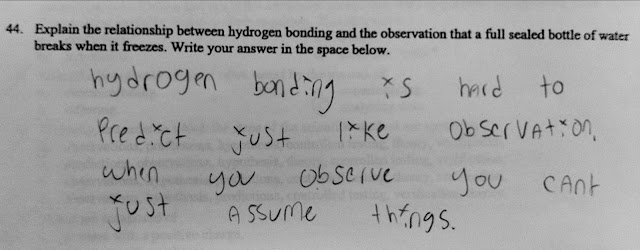 44. Explain the relationship between hydrogen bonding and the observation that a full sealed bottle of water
breaks when it freezes. Write your answer in the space below.
hydrogen bonding is hard to
Predict just like ObserVAtion,
when you observe you cAnt
just Assume things.